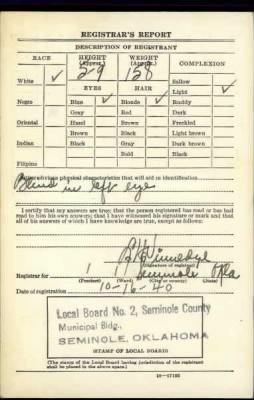 REGISTRAR'S REPORT
DESCRIPTION OF REGISTRANT
RACE HEIGHT (Approx.) WEIGHT (Approx.) COMPLEXION
5-9 158
White ✓ EYES HAIR Sallow
Light ✓
Negro Blue ✓ Blonde ✓ Ruddy
Gray Red Dark
Oriental Hazel Brown Freckled
Brown Black Light brown
Indian Black Gray Dark brown
Bald Black
Filipino
Other obvious physical characteristics that will aid in identification
Blind in left eye
I certify that my answers are true; that the person registered has read or has had
read to him his own answers; that I have witnessed his signature or mark and that
all of his answers of which I have knowledge are true, except as follows:
(Signature of registrar)
Registrar for 1 1 Seminole Okla
(Precinct) (Ward) (City or county) (State)
Date of registration 10-16-40
Local Board No. 2, Seminole County
Municipal Bldg.,
SEMINOLE, OKLAHOMA
STAMP OF LOCAL BOARD
(The stamp of the Local Board having jurisdiction of the registrant
shall be placed in the above space.)
16-17105